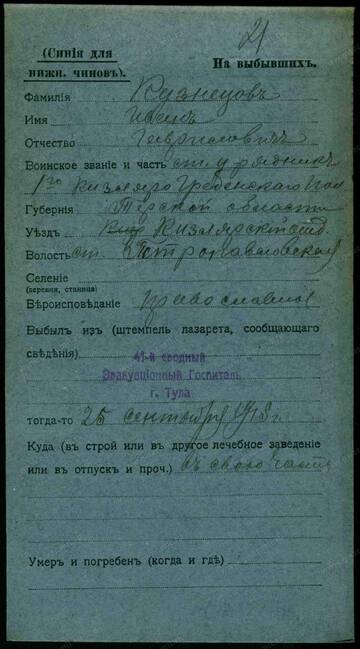 21
(Синія для
нижн. чиновъ).
На выбывшихъ.
Фамилія Кузнецовъ
Имя Иванъ
Отчество Гавриловичъ
Воинское званіе и часть ст. урядникъ
1го Кизляро Гребенскаго Пол
Губернія Терской области
Уѣздъ Кизлярскій отд.
Волость ст. Петропавловская
Селеніе
(деревня, станица)
Вѣроисповѣданіе православное
Выбылъ изъ (штемпель лазарета, сообщающаго
свѣдѣнія)
41-й сводный
Эвакуаціонный Госпиталь
г. Тула
тогда-то 25 сентября 1915 г.
Куда (въ строй или въ другое лечебное заведеніе
или въ отпускъ и проч.) въ свою часть
Умеръ и погребенъ (когда и гдѣ)